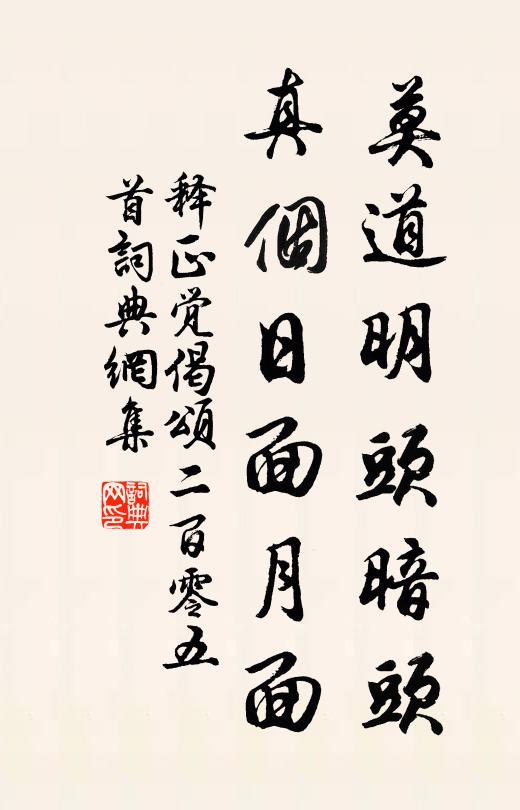 莫道明頭暗頭
真個日面月面
释正觉偈頌二百零五
首詞典網集
詞典网印